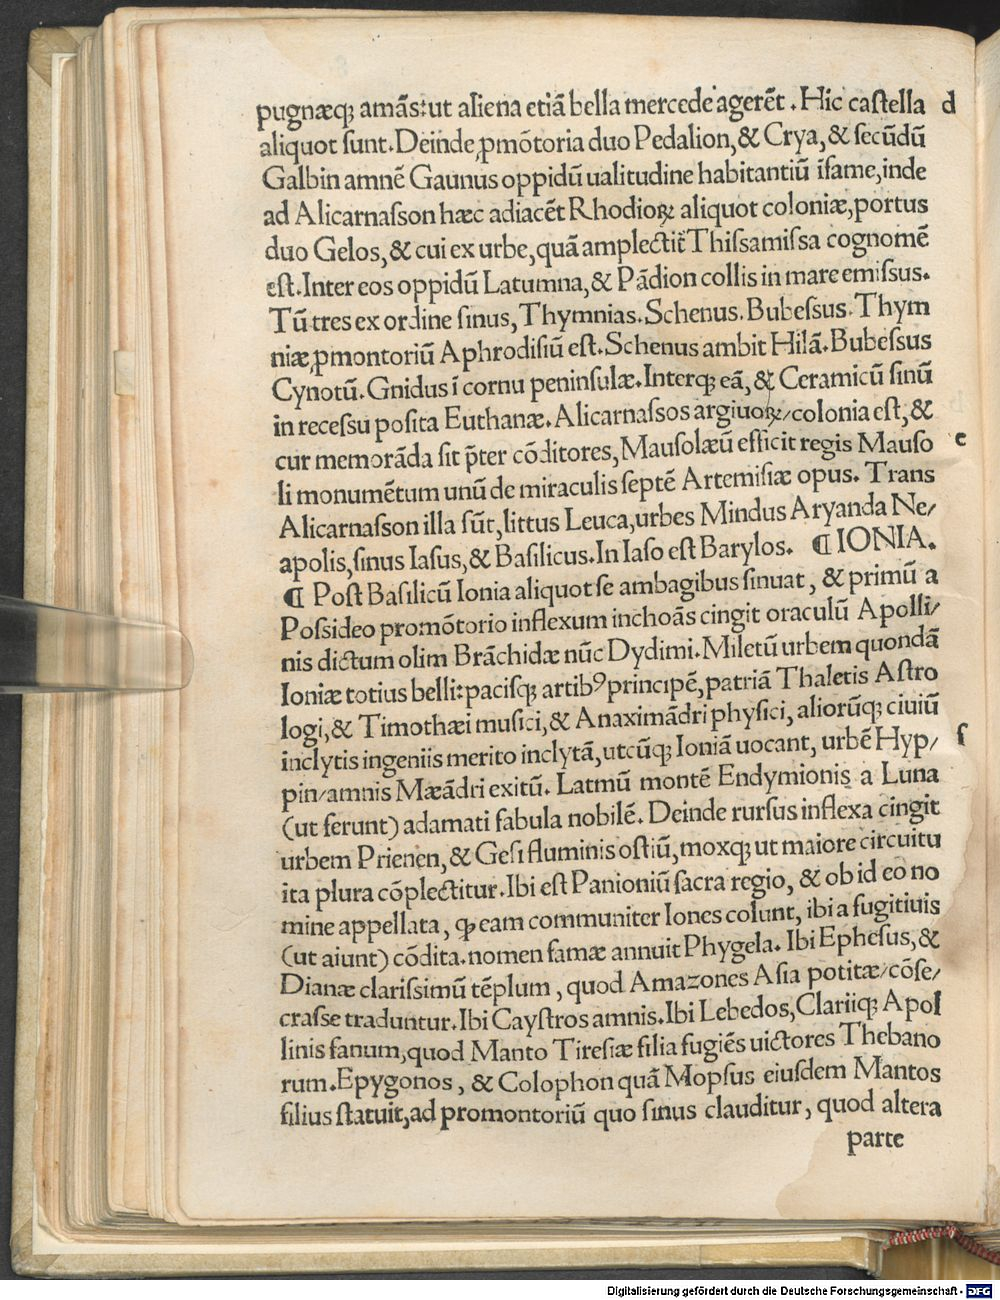 pugnæq; amãs:ut aliena etiã bella mercede agerẽt. Hic caſtella d
aliquot ſunt. Deinde ꝓmõtoria duo Pedalion, & Crya, & ſecũdũ
Galbin amnẽ Gaunus oppidũ ualitudine habitantiũ ĩfame, inde
ad Alicarnaſſon hæc adiacẽt Rhodioꝝ aliquot coloniæ, portus
duo Gelos, & cui ex urbe, quã amplectit̃ Thiſſamiſſa cognomẽ
eſt. Inter eos oppidũ Latumna, & Pãdion collis in mare emiſſus.
Tũ tres ex ordine ſinus, Thymnias. Schenus. Bubeſſus. Thym
niæ ꝓmontoriũ Aphrodiſiũ eſt. Schenus ambit Hilã. Bubeſſus
Cynotũ. Gnidus ĩ cornu peninſulæ. Interq; eã, & Ceramicũ ſinũ
in receſſu poſita Euthanæ. Alicarnaſſos argiuoꝝ/colonia eſt, &
cur memorãda ſit p̃ter cõditores, Mauſolæũ efficit regis Mauſo e
li monumẽtum unũ de miraculis ſeptẽ Artemiſiæ opus. Trans
Alicarnaſſon illa ſũt, littus Leuca, urbes Mindus Aryanda Ne/
apolis, ſinus Iaſus, & Baſilicus. In Iaſo eſt Barylos. ¶ IONIA.
¶ Poſt Baſilicũ Ionia aliquot ſe ambagibus ſinuat, & primũ a
Poſſideo promõtorio inflexum inchoãs cingit oraculũ Apolli/
nis dictum olim Brãchidæ nũc Dydimi. Miletũ urbem quondã
Ioniæ totius belli:paciſq; artibꝰ principẽ, patriã Thaletis Aſtro
logi, & Timothæi muſici, & Anaximãdri phyſici, aliorũq; ciuiũ
inclytis ingeniis merito inclytã, utcũq; Ioniã uocant, urbẽ Hyp/ f
pin/amnis Mæãdri exitũ. Latmũ montẽ Endymionis a Luna
(ut ferunt) adamati fabula nobilẽ. Deinde rurſus inflexa cingit
urbem Prienen, & Geſi fluminis oſtiũ, moxq; ut maiore circuitu
ita plura cõplectitur. Ibi eſt Panioniũ ſacra regio, & ob id eo no
mine appellata, ꝙ eam communiter Iones colunt, ibi a fugitiuis
(ut aiunt) cõdita. nomen famæ annuit Phygela. Ibi Epheſus, &
Dianæ clariſſimũ tẽplum, quod Amazones Aſia potitæ/cõſe/
craſſe traduntur. Ibi Cayſtros amnis. Ibi Lebedos, Clariiq; Apol
linis fanum, quod Manto Tireſiæ filia fugiẽs uictores Thebano
rum. Epygonos, & Colophon quã Mopſus eiuſdem Mantos
filius ſtatuit, ad promontoriũ quo ſinus clauditur, quod altera
parte
Digitalisierung gefördert durch die Deutsche Forschungsgemeinschaft - DFG